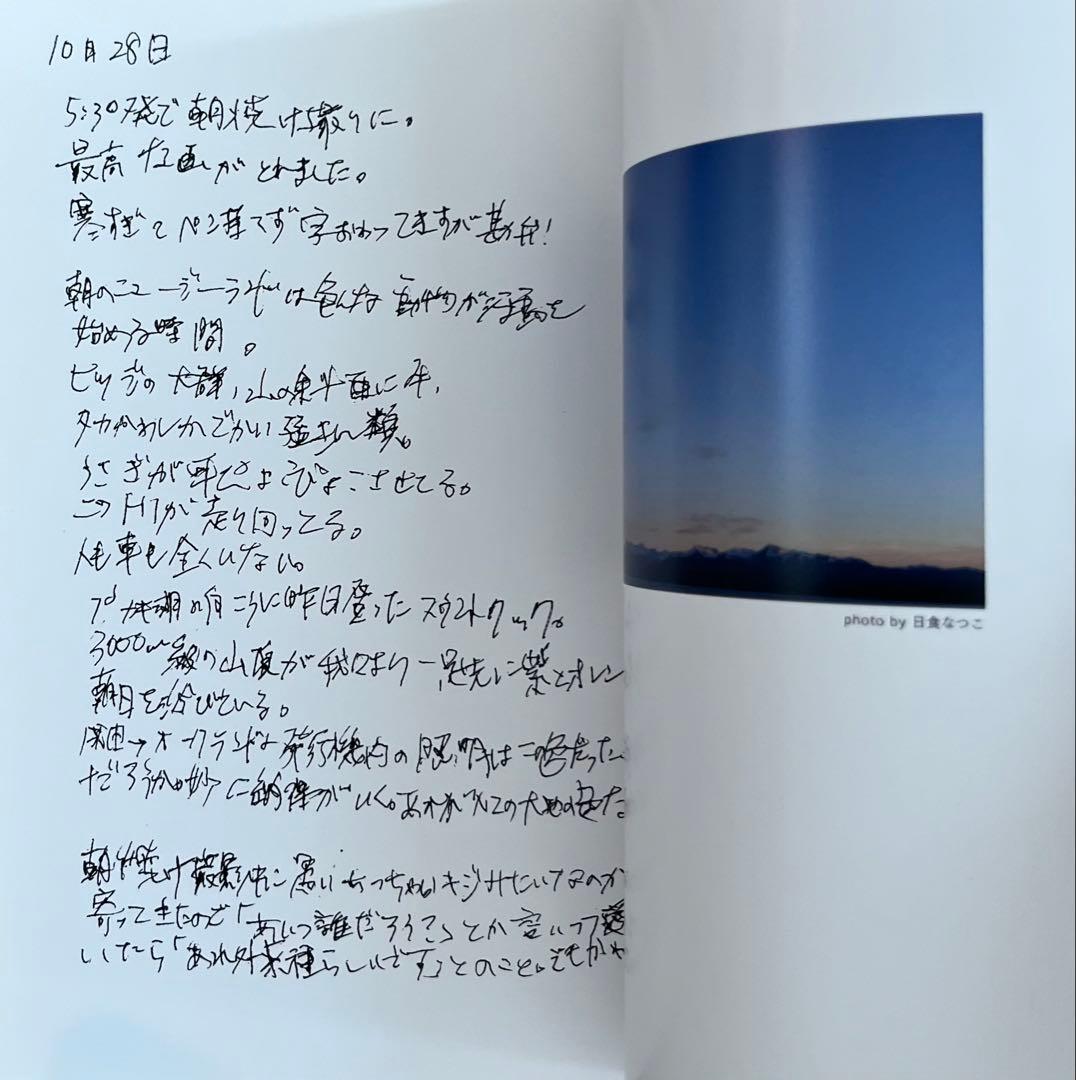 10月28日
5:30発で朝焼け撮りに。
最高な画がとれました。
寒すぎてペン持てず字おわってますが勘弁!
朝のニュージーランドは色んな動物が活動を
始める時間。
ヒツジの大群、山の東斜面に牛、
タカかわしかでかい猛きん類。
うさぎが耳ぴょこぴょこさせてる。
この
が走り回ってる。
人も車も全くいない。
プカキ湖の向こうに昨日登った
3000m級の山頂が我々より一足先に紫とオレン
朝日を浴びている。
成田→オークランドな飛行機内の照明は
だろうか妙に納得がいく。
朝焼け撮影中に黒いちっちゃいキジみたいなのが
寄ってきたので「あいつ誰だろうね」とか言いつつ
いたら「あれ外来種らしいです」とのこと。でもかわ
photo by 日食なつこ